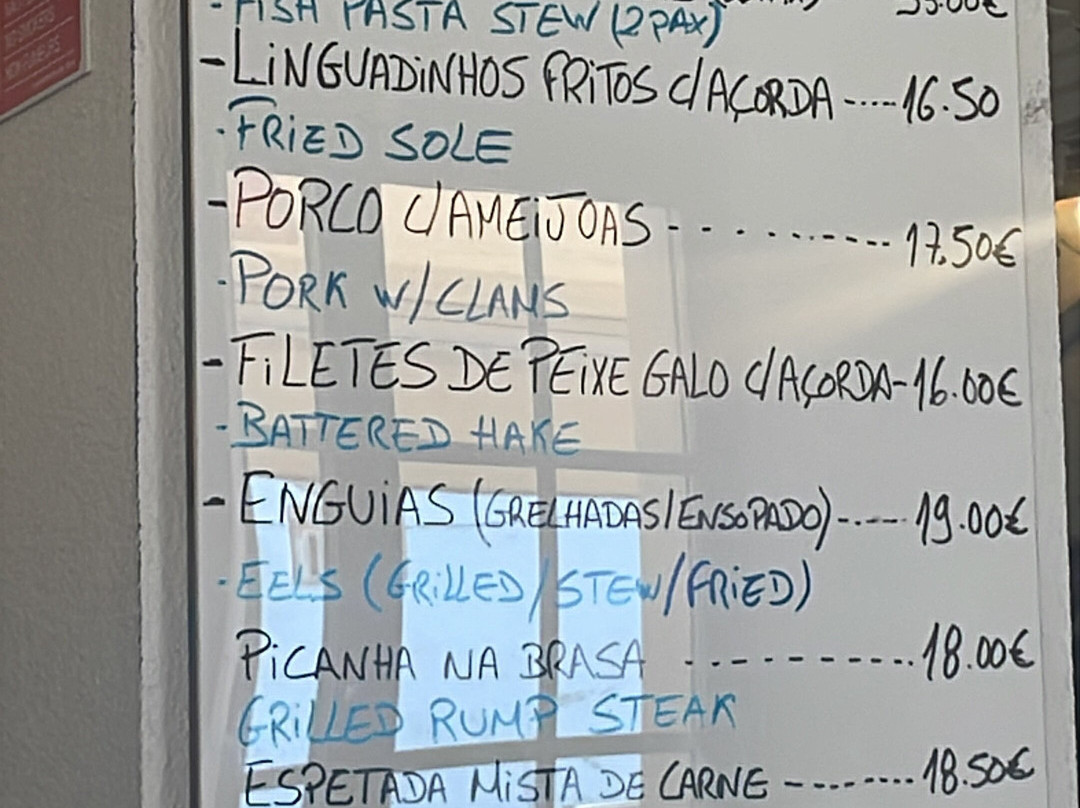 - FISH PASTA STEW (2 PAX)
- LINGUADINHOS FRITOS C/AÇORDA -----16.50
- FRIED SOLE
- PORCO C/AMEIJOAS - - - - - ----- 17.50€
- PORK W/CLAMS
- FILETES DE PEIXE GALO C/AÇORDA-16.00€
- BATTERED HAKE
- ENGUIAS (GRELHADAS/ENSOPADO)------ 19.00€
- EELS (GRILLED/STEW/FRIED)
PICANHA NA BRASA - - - - - - - - - - - 18.00€
GRILLED RUMP STEAK
ESPETADA MISTA DE CARNE ---------- 18.50€